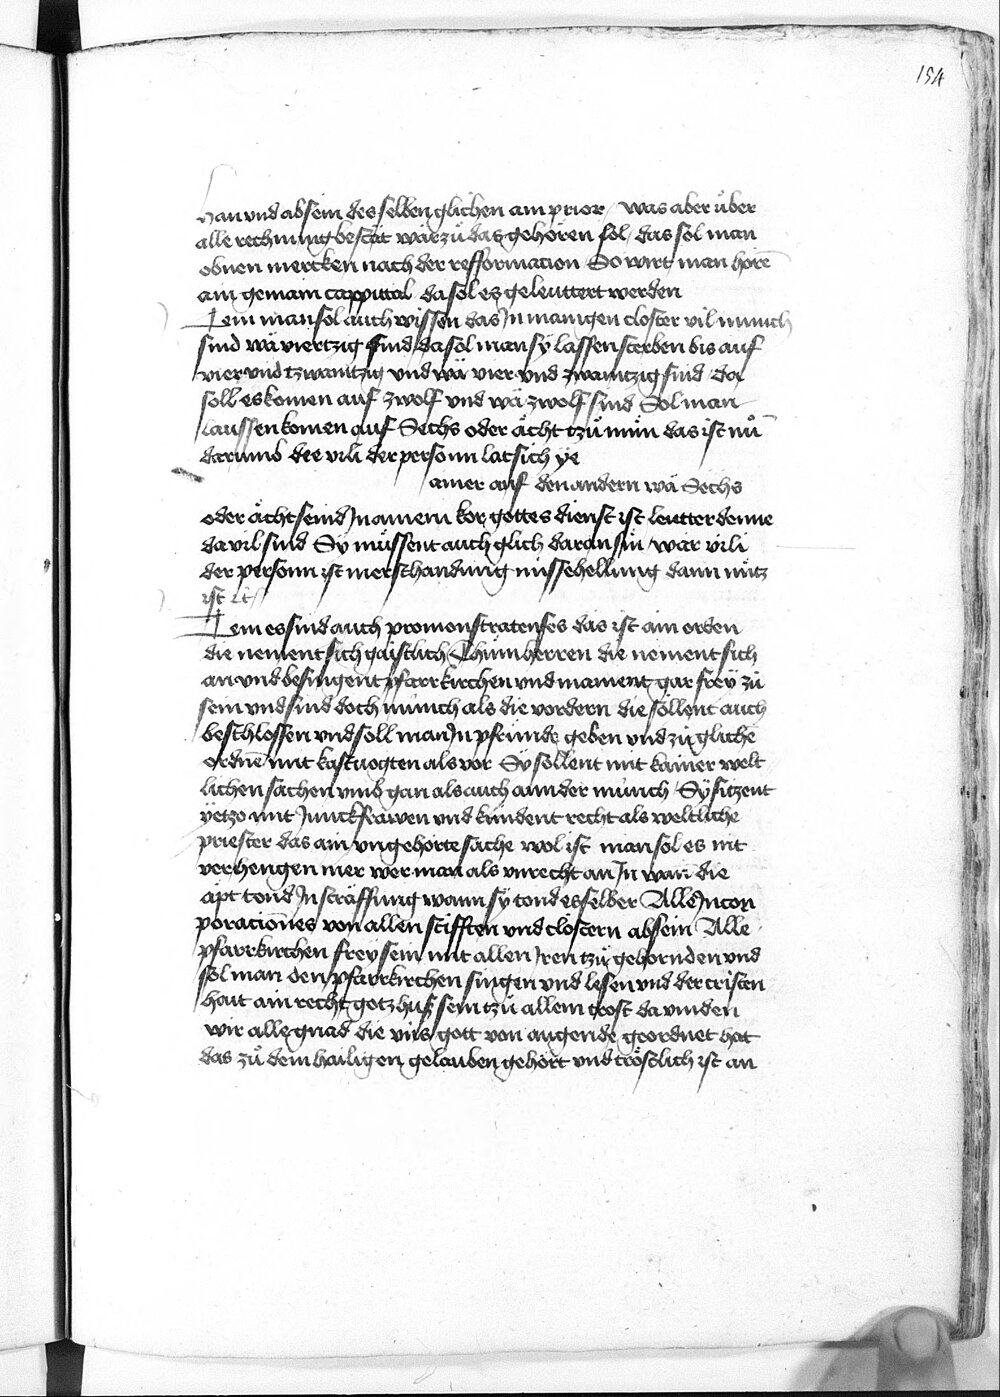 154
han und absein des selben glichen ain prior / was aber über
alle rechnung bestät wär zů das gehören sol / das sol man
obnen mercken nach der refformacion So wirt man hörē
ain gemain cappittal da sol es geleuttert werden
Item man sol auch wissen das Jn manigen closter vil münich
sind wä viertzig sind da sol man sy lassen sterben bis auf
vier und tzwaintzig und wä vier und zwaintzig sind da
soll es komen auf zwolf und wä zwolf sind Sol man
laussen komen auf Sechs oder ächt tzů nün das ist nů
darumb die vili der person lat sich ye
ainer auf den andern wä Sechs
oder ächt seind Jn ainem kor gottes dienst ist leutter denne
da vil sind Sy müssent auch glich daran sin / wär vili
der person ist mer schandung missehellung dann nütz
ist ec
Item es sind auch premonstratenses das ist ain orden
die nement sich gaistlich Chůmherren die nement sich
an und besingent pfarrkirchen und mainent gar frey zů
sein und sind doch münch als die vordern die söllent auch
beschlossen und soll man Jn pfründe geben und zů gliche
ordnē mit kastvogten als vor Sy sollent mit kainer welt
lichen sachen umb gan als auch annder münch / Sy sitzent
yetzo mit Junckfrawen und kündent recht als weltliche
priester das ain ungehorte sache wol ist man sol es nit
verhengen mer wer man als unrecht an Jn wan die
äpt tond Jn sträffung wann sy tond es selber Alle Jncor
poraciones von allen stifften und clöstern absein Alle
pfarrkirchen frey sein mit allen Jren tzů gehornden und
sol man den pfarrkirchen singen und lesen und der cristen
hait ain recht gotzhuß sein tzů allem trost da vinden
wir alle gnad die uns gott von augende geordnet hat
das zů dem hailigen gelauben gehört und tröstlich ist an